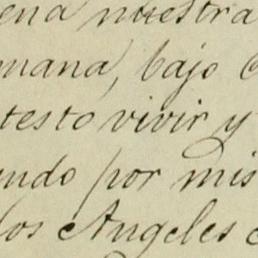 ena nuestra
mana, bajo c
testo vivir y
ndo por mis
los Angeles